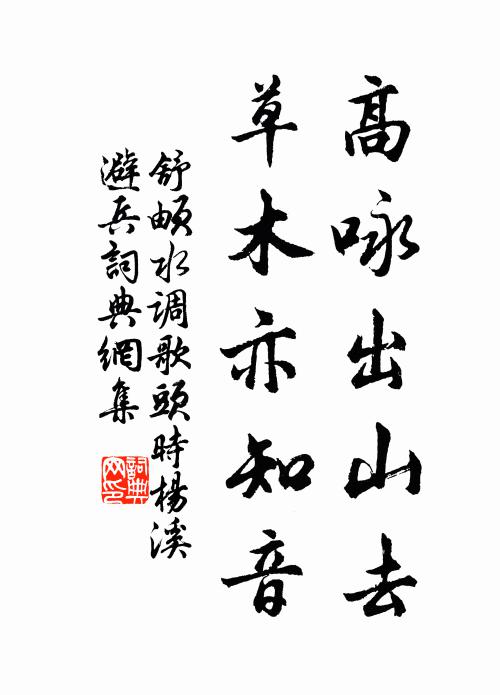 高咏出山去
草木亦知音
舒頔水调歌頭時楊溪
避兵詞典網集
詞典
网印